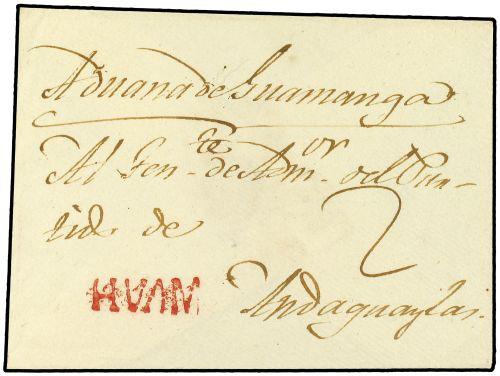 Aduana de Guamanga
Al Ten.te de Adm.or del Par-
tido de
2
HUAM
Andaguaylas.